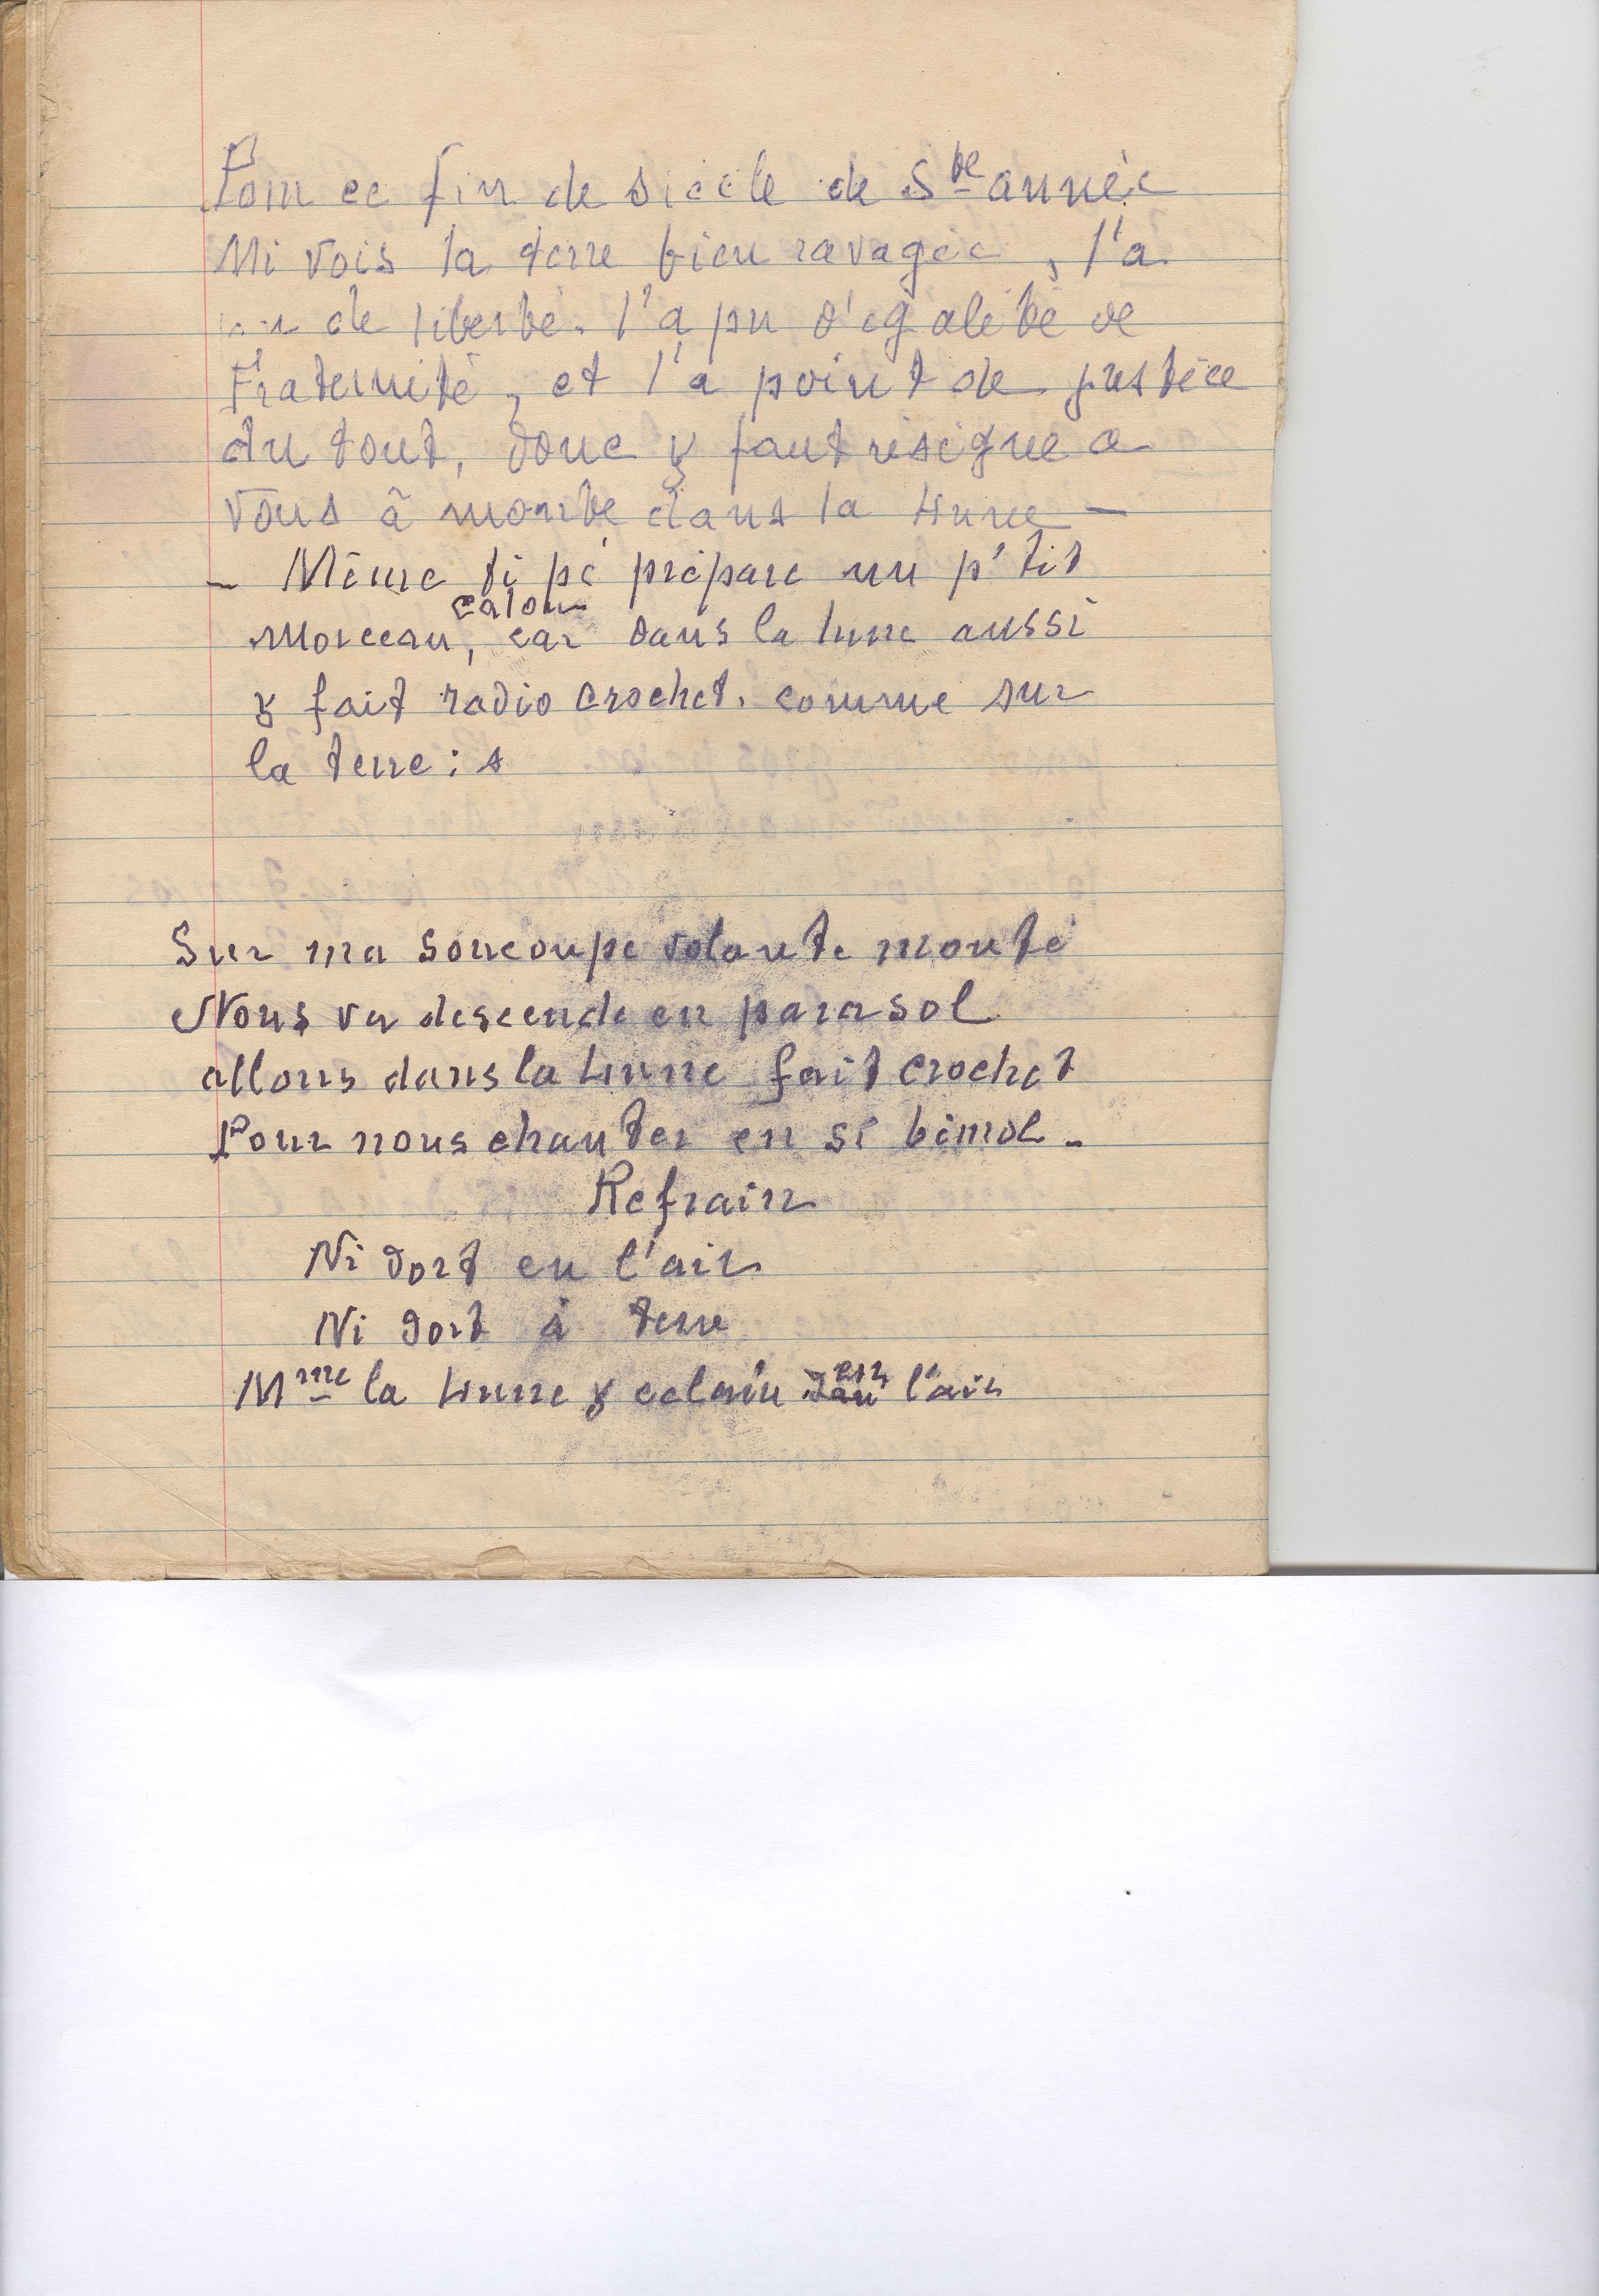 Pour ce fin de siècle de Ste année
Mi vois la terre bien ravagée, l'a
de liberté. l'a pu d'égalité de
Fraternité, et l'a point de justice
du tout, donc y faut résigne a
vous à monte dans la lune -
- Même ti pé prépare un p'tit
morceau, car dans la lune aussi
y fait radio crochet. comme sur
la terre :
Sur ma soucoupe volante monté
Nous va descende en parasol
allons dans la lune fait crochet
Pour nous chanter en si bémol -
Refrain
Ni dort en l'air
Ni dort à terre
Mme la lune y eclair en l'air